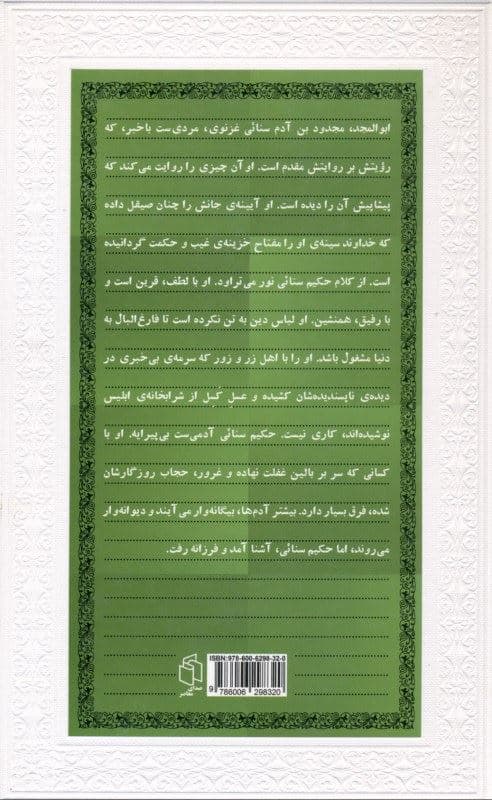 ابوالمجد، مجدود بن آدم سنائی غزنوی، مردی‌ست باخبر، که
رؤیتش بر روایتش مقدم است. او آن چیزی را روایت می‌کند که
پیشاپیش آن را دیده است. او آیینه‌ی جانش را چنان صیقل داده
که خداوند سینه‌ی او را مفتاح خزینه‌ی غیب و حکمت گردانیده
است. از کلام حکیم سنائی نور می‌تراود. او با لطف، قرین است و
با رفیق، همنشین. او لباس دین به تن نکرده است تا فارغ‌البال به
دنیا مشغول باشد. او را با اهل زر و زور که سرمه‌ی بی‌خبری در
دیده‌ی ناپسندیده‌شان کشیده و عسلِ کَسِل از شرابخانه‌ی ابلیس
نوشیده‌اند، کاری نیست. حکیم سنائی آدمی‌ست بی‌پیرایه. او با
کسانی که سر بر بالین غفلت نهاده و غرور، حجاب روزگارشان
شده، فرق بسیار دارد. بیشتر آدم‌ها، بیگانه‌وار می‌آیند و دیوانه‌وار
می‌روند، اما حکیم سنائی، آشنا آمد و فرزانه رفت.
ISBN: 978-600-6298-32-0
9 786006 298320
صدای معاصر